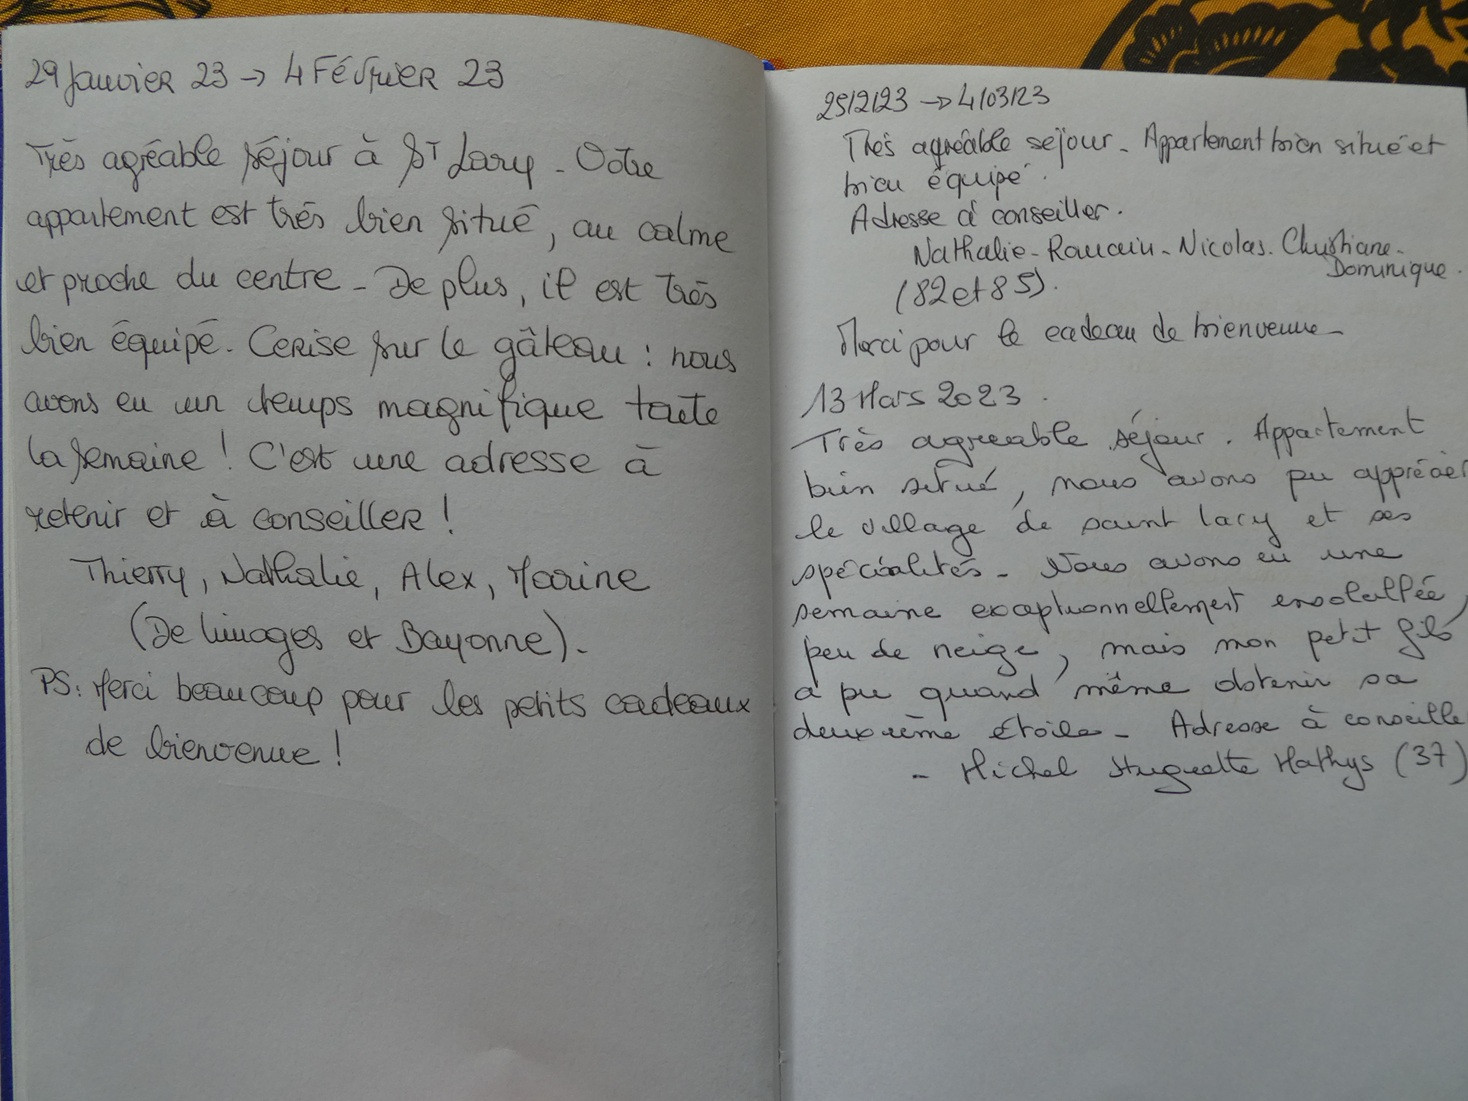 29 Janvier 23 → 4 Février 23
Très agréable séjour à St Lary - Votre
appartement est très bien situé, au calme
et proche du centre - De plus, il est très
bien équipé. Cerise sur le gâteau : nous
avons eu un temps magnifique toute
la semaine ! C'est une adresse à
retenir et à conseiller !
Thierry, Nathalie, Alex, Marine
(De Limoges et Bayonne).
PS: Merci beaucoup pour les petits cadeaux
de bienvenue !
25/2/23 → 4/03/23
Très agréable séjour - Appartement bien situé et
bien équipé.
Adresse à conseiller.
Nathalie - Romain - Nicolas - Christiane -
Dominique.
(82 et 85).
Merci pour le cadeau de bienvenue -
13 Mars 2023.
Très agreeable séjour. Appartement
bien situé, nous avons pu apprécier
le village de saint lary et ses
spécialités - Nous avons eu une
semaine exceptionnellement ensoleillée,
peu de neige, mais mon petit fils
a pu quand même obtenir sa
deuxième étoile - Adresse à conseille
- Michel Huguette Mathys (37)